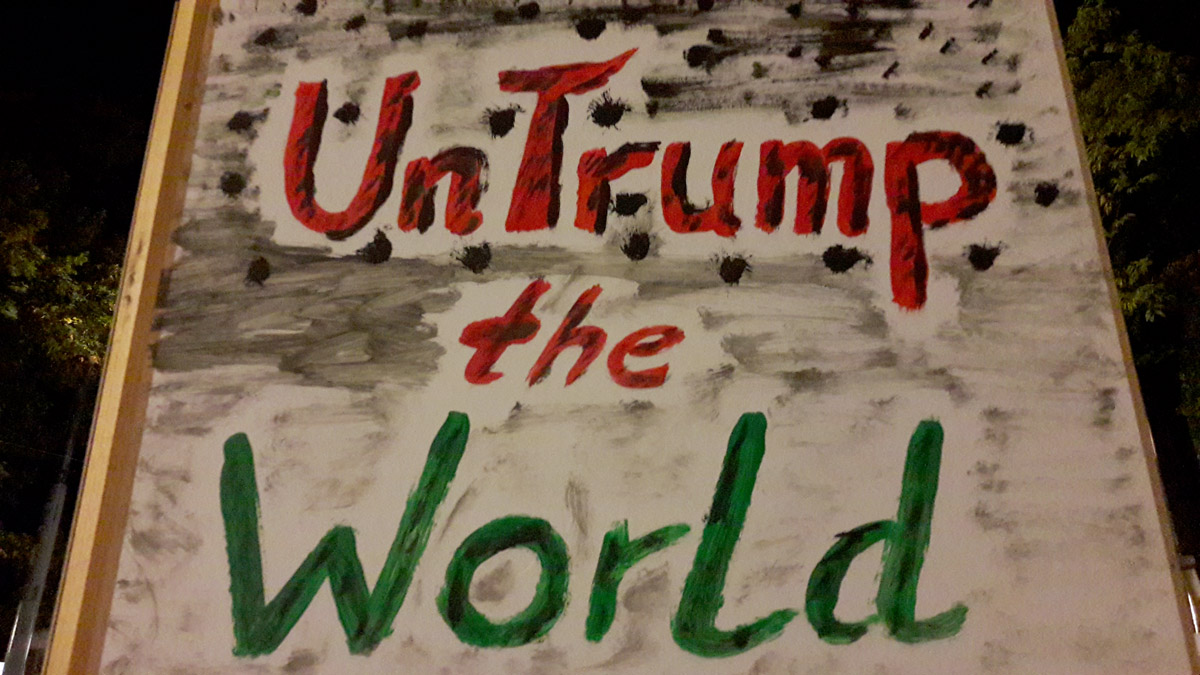 UnTrump
the
World